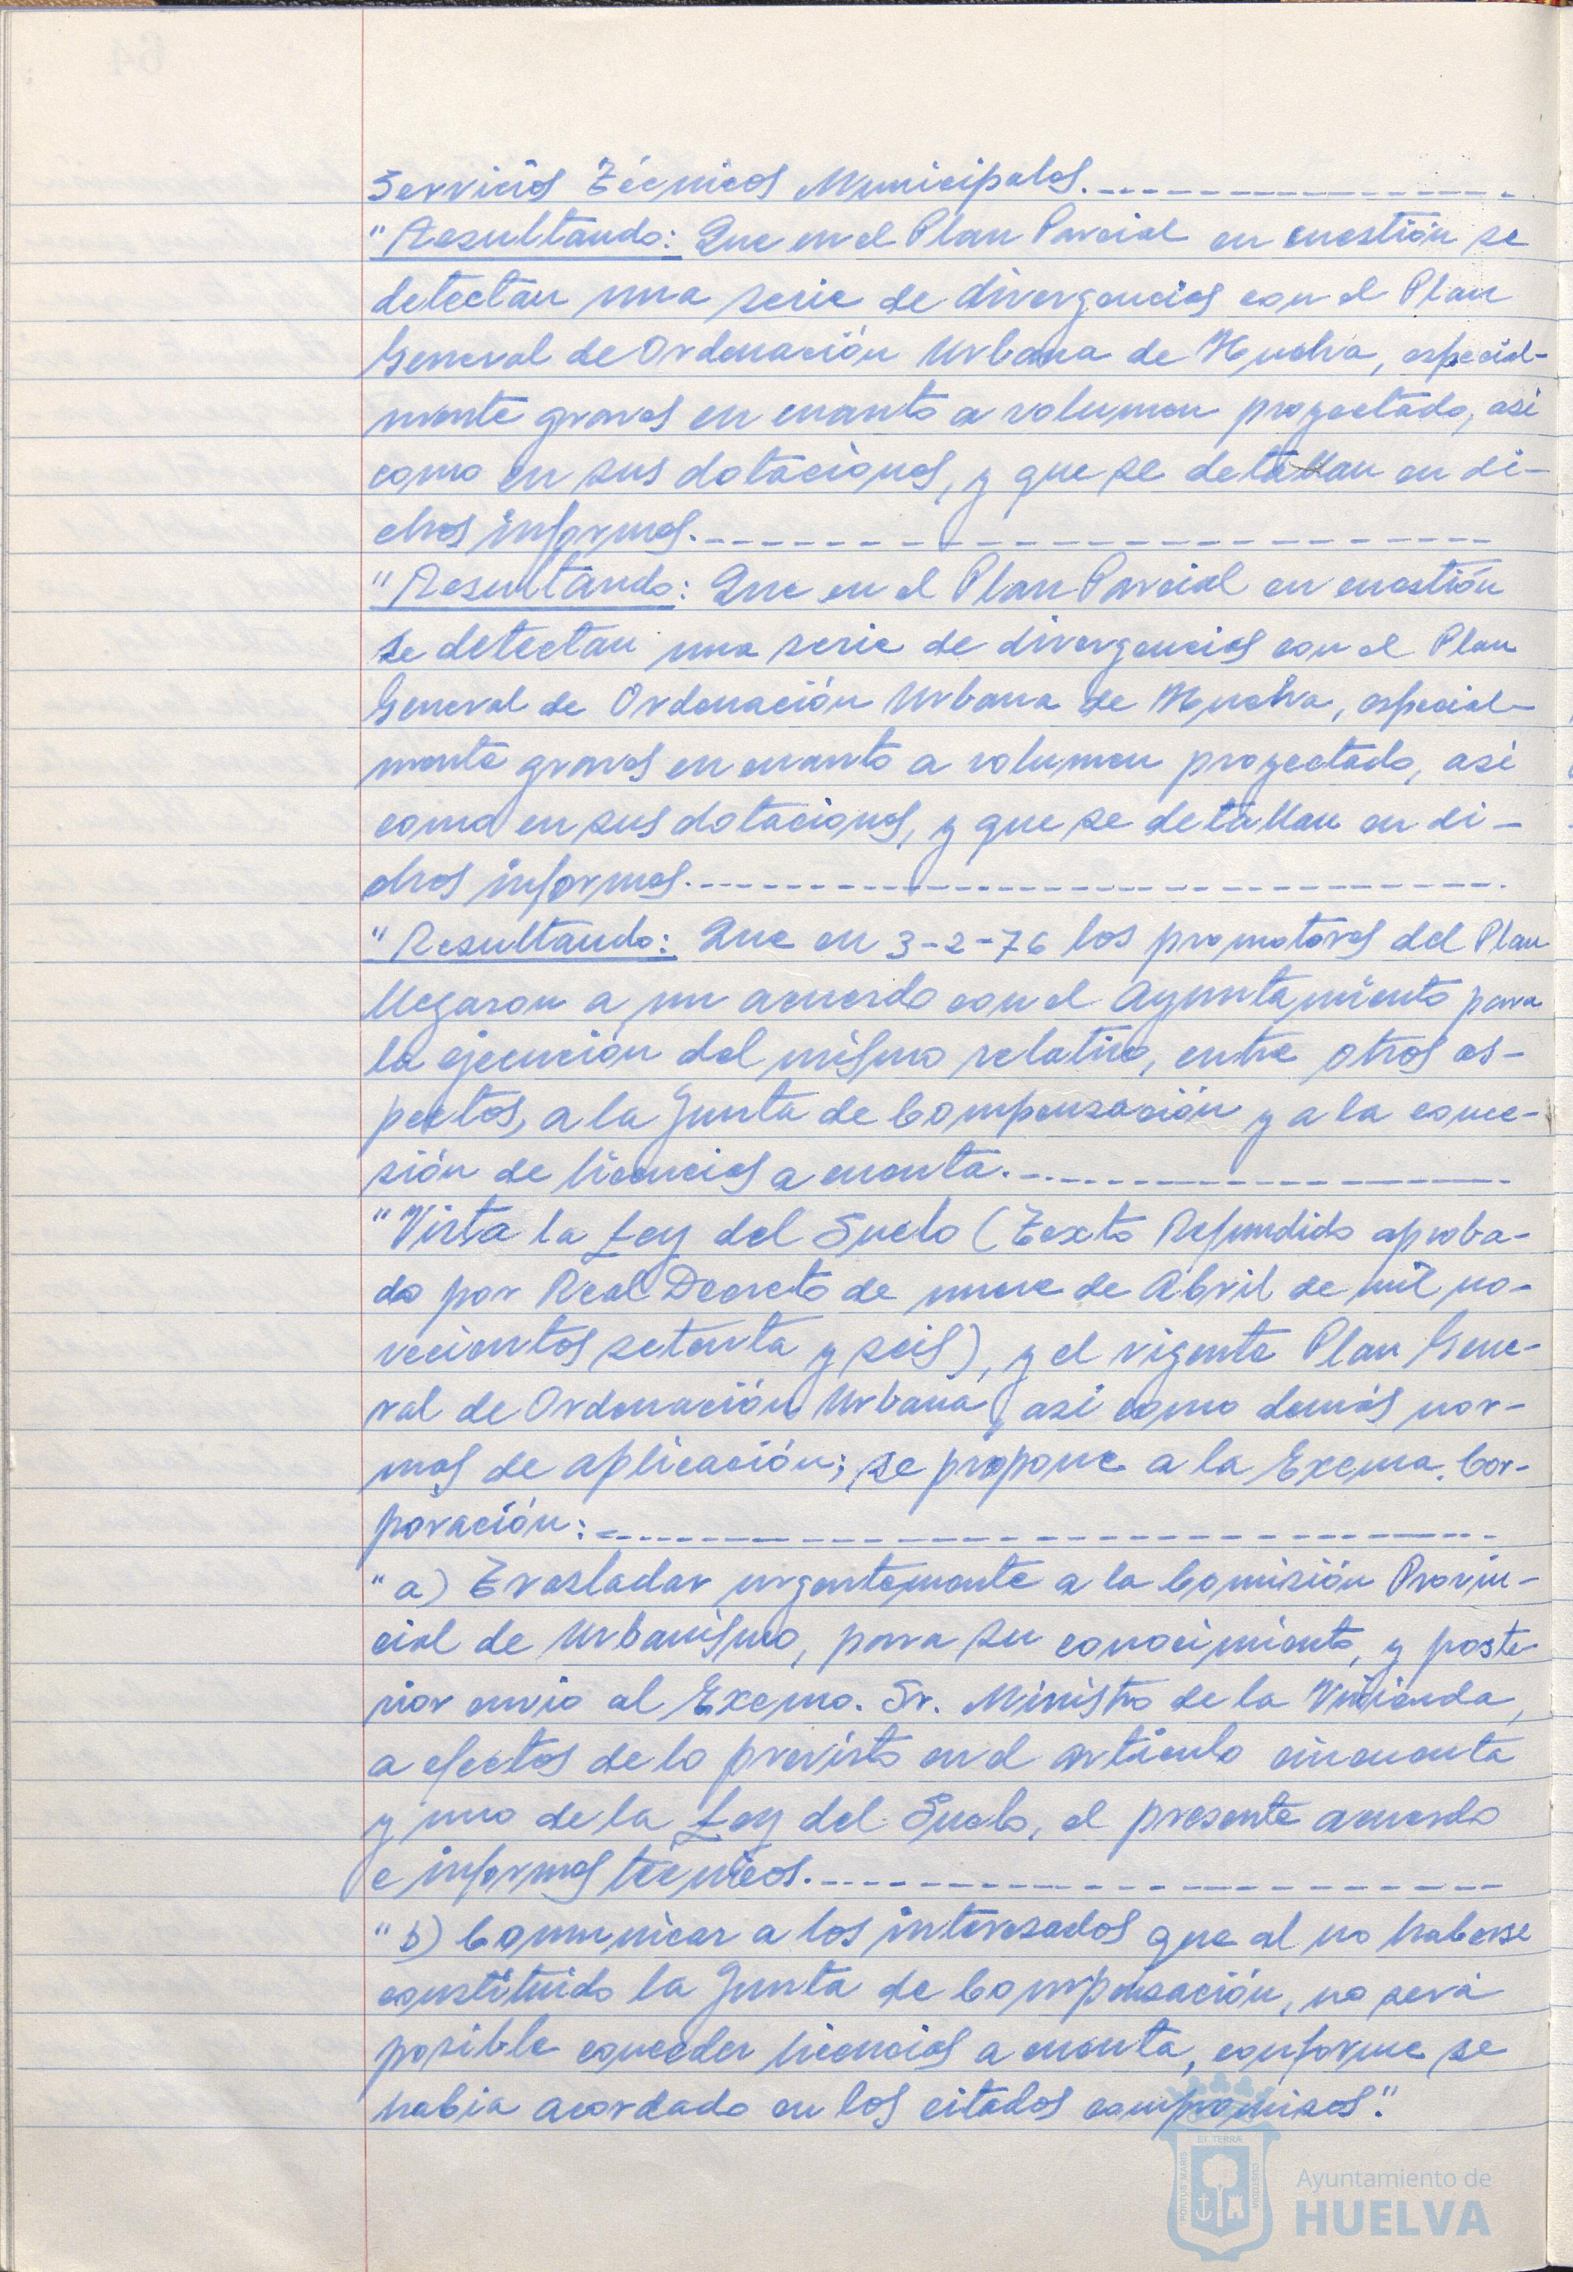 Servicios Técnicos Municipales.
"Resultando: Que en el Plan Parcial en cuestión se
detectan una serie de divergencias con el Plan
General de Ordenación Urbana de Huelva, especial-
mente graves en cuanto a volumen proyectado, asi
como en sus dotaciones, y que se detallan en di-
chos informes.
"Resultando: Que en el Plan Parcial en cuestión
se detectan una serie de divergencias con el Plan
General de Ordenación Urbana de Huelva, especial-
mente graves en cuanto a volumen proyectado, asi
como en sus dotaciones, y que se detallan en di-
chos informes.
"Resultando: Que en 3-2-76 los promotores del Plan
llegaron a un acuerdo con el Ayuntamiento para
la ejecución del mismo relativo, entre otros as-
pectos, a la Junta de Compensación y a la conce-
sión de licencias a cuenta.
"Vista la Ley del Suelo (Texto Refundido aproba-
do por Real Decreto de nueve de Abril de mil no-
vecientos setenta y seis), y el vigente Plan Gene-
ral de Ordenación Urbana, asi como demás nor-
mas de aplicación; se propone a la Excma. Cor-
poración:
"a) Trasladar urgentemente a la Comisión Provin-
cial de Urbanismo, para su conocimiento, y poste-
rior envio al Excmo. Sr. Ministro de la Vivienda,
a efectos de lo previsto en el artículo cincuenta
y uno de la Ley del Suelo, el presente acuerdo
e informes técnicos.
"b) Comunicar a los interesados que al no haberse
constituido la Junta de Compensación, no será
posible conceder licencias a cuenta, conforme se
habia acordado en los citados compromisos."
ET TERRA
PORTUS MARIS
CUSTODIA
Ayuntamiento de
HUELVA